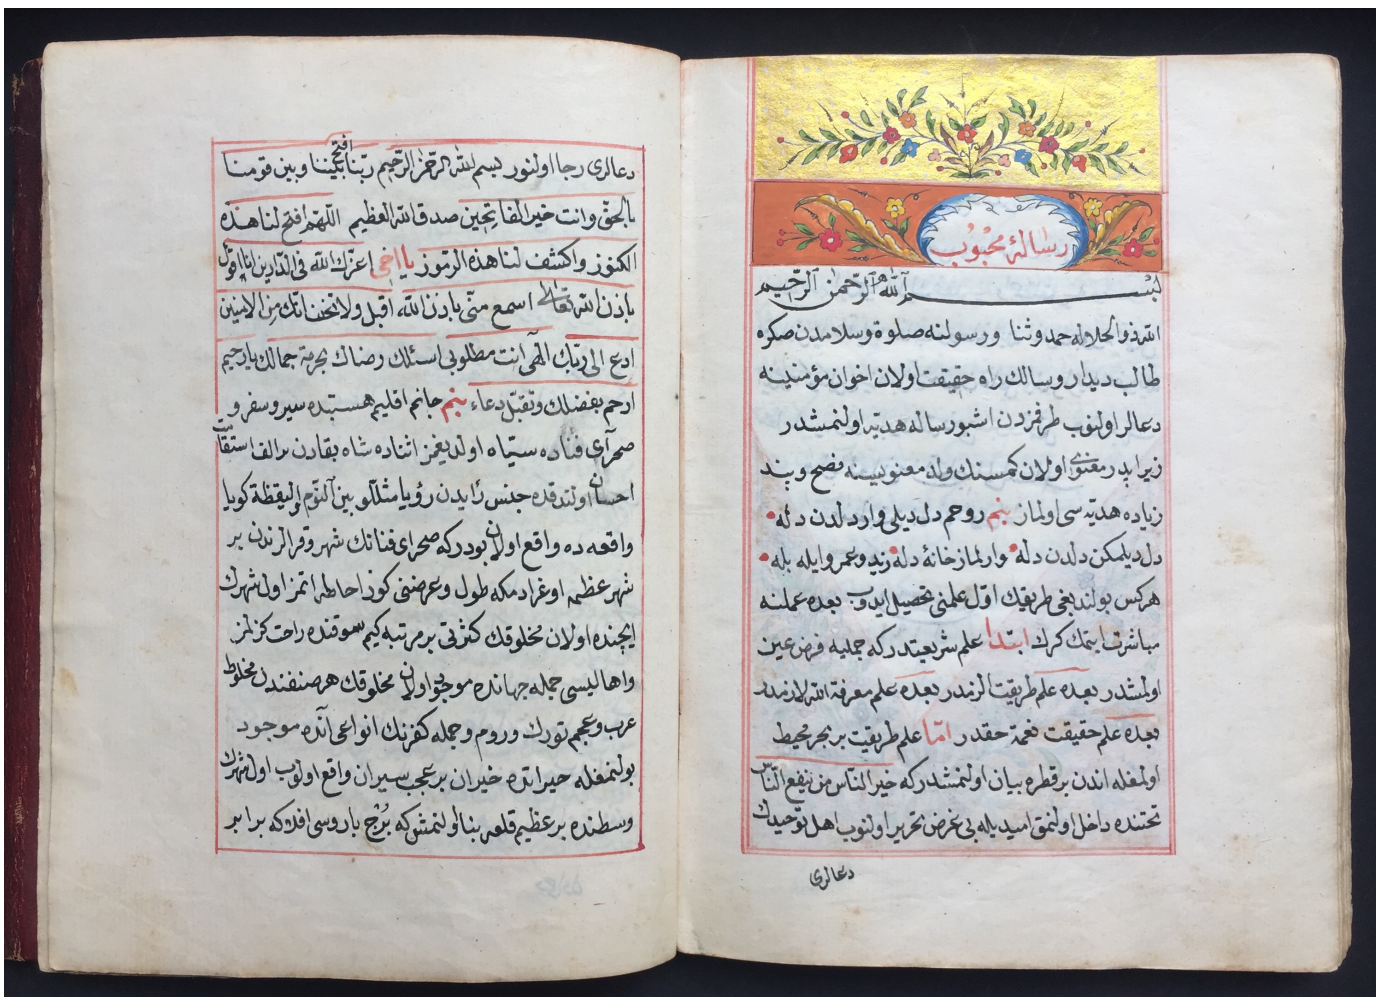 رسالۀ محبوب
بسم الله الرحمن الرحيم
الله ذو الجلاله حمد وثنا ورسولنه صلوة وسلامدن صكره
طالب ديدار وسالك راه حقيقت اولان اخوان مؤمنينه
دعالر اولنوب طرفمزدن اشبو رساله هديه اولنمشدر
زيرا پدر معنوى اولان كمسنك ولد معنويسنه نصح وپند
زياده هديه سى اولماز بنم روحم دل ديلى وارد لدن دله
دل ديلمكن دلدن دله وارلماز خانۀ دله زيد وعمر وايله بله
هركس بولندیغی طريقك اول علمنى تحصيل ايدوب بعده عملنه
مباشرت ايتمك كرك ابتدا علم شريعتدر كه جمليه فرض عين
اولمشدر بعده علم طريقت لازمدر بعده علم معرفة الله لازمدر
بعده علم حقيقت نعمة حقدر اما علم طريقت بر بحر محيط
اولمغله اندن بر قطره بيان اولنمشدر كه خير الناس من ينفع الناس
تحتنده داخل اولنمق اميديله بى غرض تحرير اولنوب اهل توحيدك
دعالرى
دعالرى رجا اولنور بسم الله الرحمن الرحيم ربنا افتح بيننا وبين قومنا
بالحق وانت خير الفاتحين صدق الله العظيم اللهم افتح لنا هذه
الكنوز واكشف لنا هذه الرموز يا اخى اعزك الله فى الدارين
باذن الله تعالى اسمع منى باذن الله اقبل ولا تخف انك من الامنين
ادع الى ربك الهى انت مطلوبى اسئلك رضاك بحرمة جمالك يا رحيم
ارحم بفضلك وتقبل دعاء بنم جانم اقليم هستيده سير وسفر و
صحراى فناده سياه اولديغمز اثناده شاه بقادن بزالفا استقامت
احسان اولندقده جنس زايدن رؤيا مثللو بين النوم واليقظة كويا
واقعه ده واقع اولان بودر كه صحراى فنانك شهر وقرالرندن بر
شهر عظيمه اوغرادمكه طول وعرضنى كوز احاطه اتمز اول شهرك
ايچنده اولان مخلوقك كثرتى بر مرتبه كيم سوقنده راحت كزلمز
واهاليسى جمله جهانده موجود اولان مخلوقك هر صنفندن مخلوط
عرب وعجم تورك وروم وجمله كفرنك انواعى آنده موجود
بولنمغله حيرانده خيران بر عجب سيران واقع اولوب اول شهرك
وسطنده بر عظيم قلعه بنا اولنمش كه برج باروسى افلاكه برابر